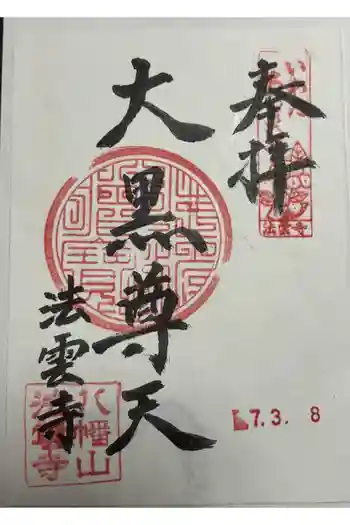 奉拝
大黒尊天
法雲寺
法雲寺
八幡山
法雲寺
7.3.8